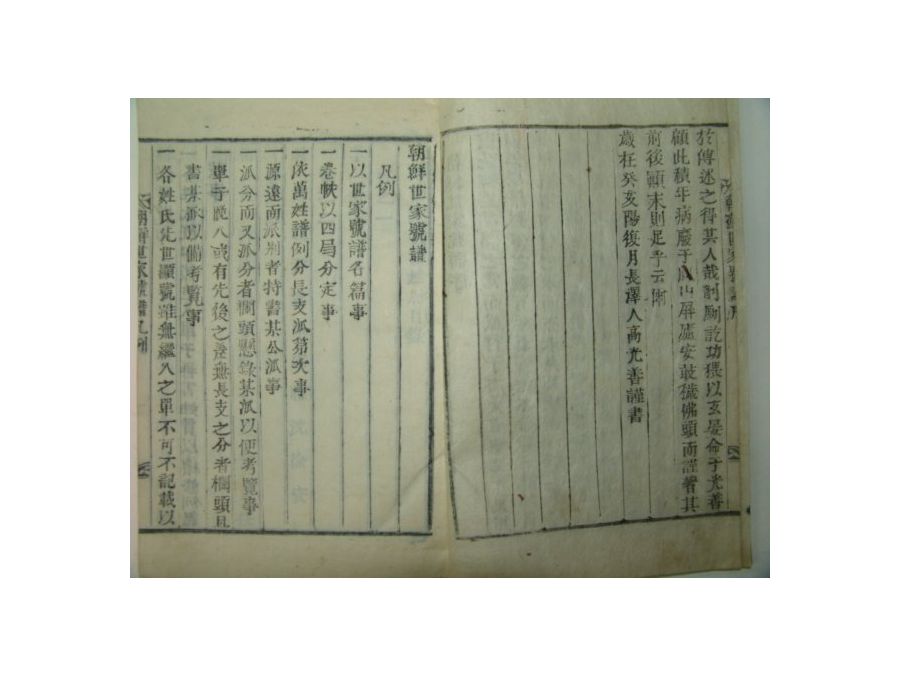 於傳述之得其人哉剞劂訖功猥以玄晏命于光善
顧此積年病廢于山屏處安敢穢佛頭而謹書其
前後顚末則足乎云爾
歲在癸亥陽復月長澤人高光善謹書
朝鮮世家號譜
凡例
一以世家號譜名篇事
一卷帙以四局分定事
一依萬姓譜例分長支派第次事
一源遠而派別者特書某公派事
一派分而又派分者欄頭懸錄某派以便考覽事
一單子晩入或有先後之差無長支之分者欄頭具
書某派以備考覽事
一各姓氏先世顯號雖無繼入之單不可不記載以
朝鮮世家號譜凡例